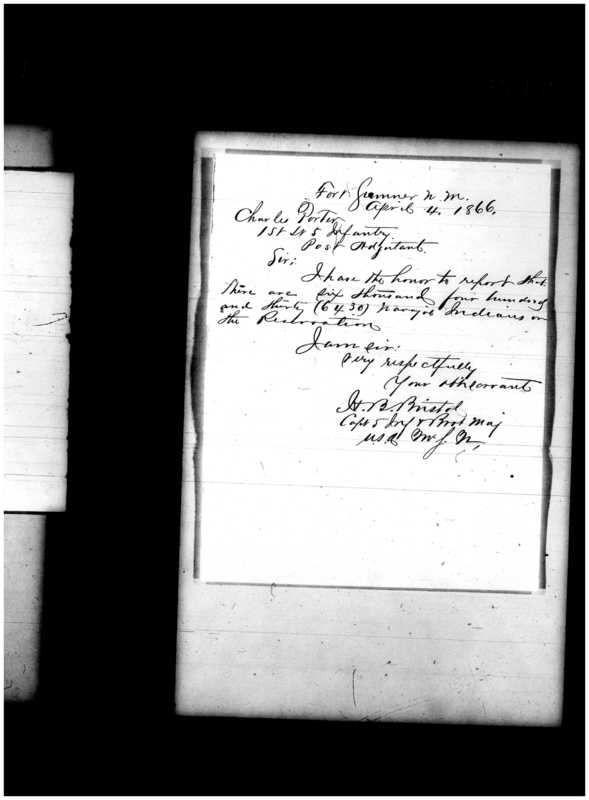 Fort Sumner N. M.
April 4. 1866.
Charles Porter
1st Lt 5 Infantry
Post Adjutant.
Sir;
I have the honor to report that
there are six thousand four hundred
and thirty (6430) Navajoe Indians on
the Reservation
I am sir:
very respectfully
Your obt servant
H. B. Bristol
Capt 5 Inf & Brvt Maj
USA